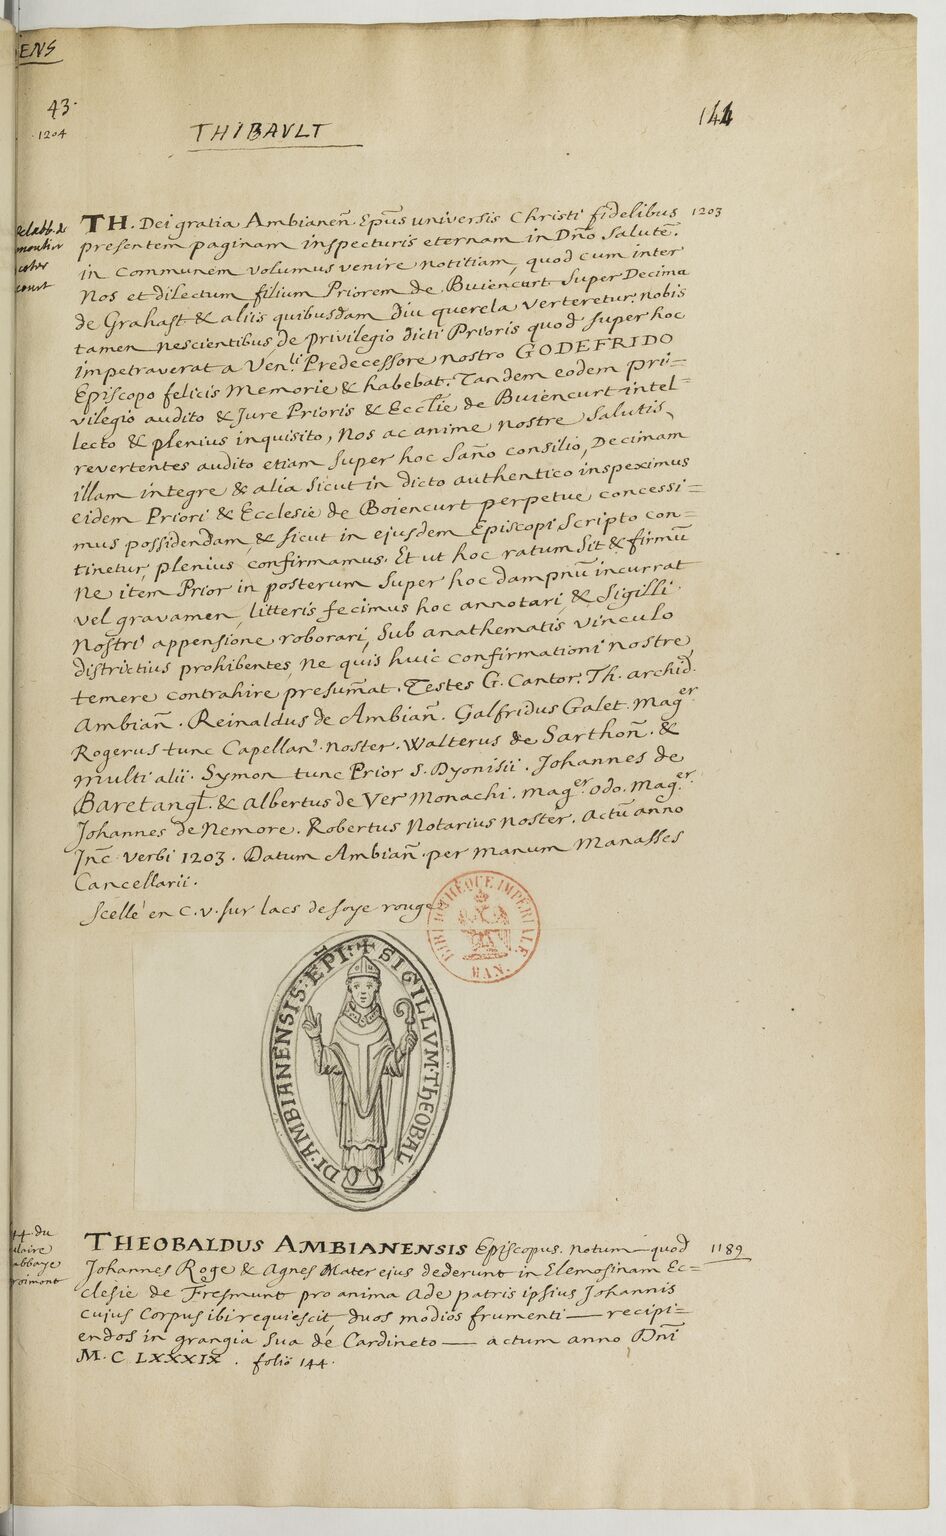 ENS
43.
1204
THIBAULT
144
de labb. de
TH. Dei gratia Ambianen̄. Ep̄us universis Christi fidelibus 1203
presentem paginam inspecturis eternam in Dn̄o Salutē.
in communem volumus venire notitiam, quod cum inter
Nos et dilectum filium Priorem de Buiencurt super Decima
de Grahast & aliis quibusdam diu querela verteretur. nobis
tamen nescientibus de privilegio dicti Prioris quod super hoc
impetraverat a Ven.li Predecessore nostro GODEFRIDO
Episcopo felicis Memorie & habebat. Tandem eodem pri=
vilegio audito & Jure Prioris & Eccl̄ie de Buiencurt intel=
lecto & plenius inquisito, Nos ac anime nostre salutis
revertentes audito etiam super hoc san̄o consilio, Decimam
illam integre & alia sicut in dicto authentico inspeximus
eidem Priori & Ecclesie de Boiencurt perpetue concessi=
mus possidendam, & sicut in ejusdem Episcopi Scripto con=
tinetur, plenius confirmamus. Et ut hoc ratum sit & firmū
Ne item Prior in posterum super hoc dampnū incurrat
vel gravamen, litteris fecimus hoc annotari, & Sigilli
Nostri appensione roborari, Sub anathematis vinculo
districtius prohibentes, ne quis huic confirmationi nostre
temere contrahire presum̄at. Testes G. Cantor. Th. archid.
Ambian̄. Reinaldus de Ambian̄. Galfridus Galet. Mag.er
Rogerus tunc Capellan. noster. Walterus de Sarthon̄. &
multi alii. Symon tunc Prior S. Dyonisii. Johannes de
Baretangt̄. & Albertus de Ver Monachi. mag.er odo. mag.er
Johannes de Nemore. Robertus Notarius noster. actū anno
Jnc̄. verbi 1203. Datum Ambian̄. per manum Manasses
Cancellarii.
scellé en c. v. sur lacs de soye rouge
BIBLIOTHÈQUE IMPÉRIALE
MAN.
✝ SIGILLVM: THEOBALDI: AMBIANENSIS: EP̄I:
44 du
abbaye
THEOBALDUS AMBIANENSIS Episcopus. notum — quod 1189
Johannes Roge & Agnes Mater ejus dederunt in Elemosinam Ec=
clesie de Fresmunt pro anima Ade patris ipsius Johannis
cujus corpus ibi requiescit, duos modios frumenti — recipi=
endos in grangia sua de Cardineto — actum anno Dn̄i
M. C LXXXIX. folio 144.